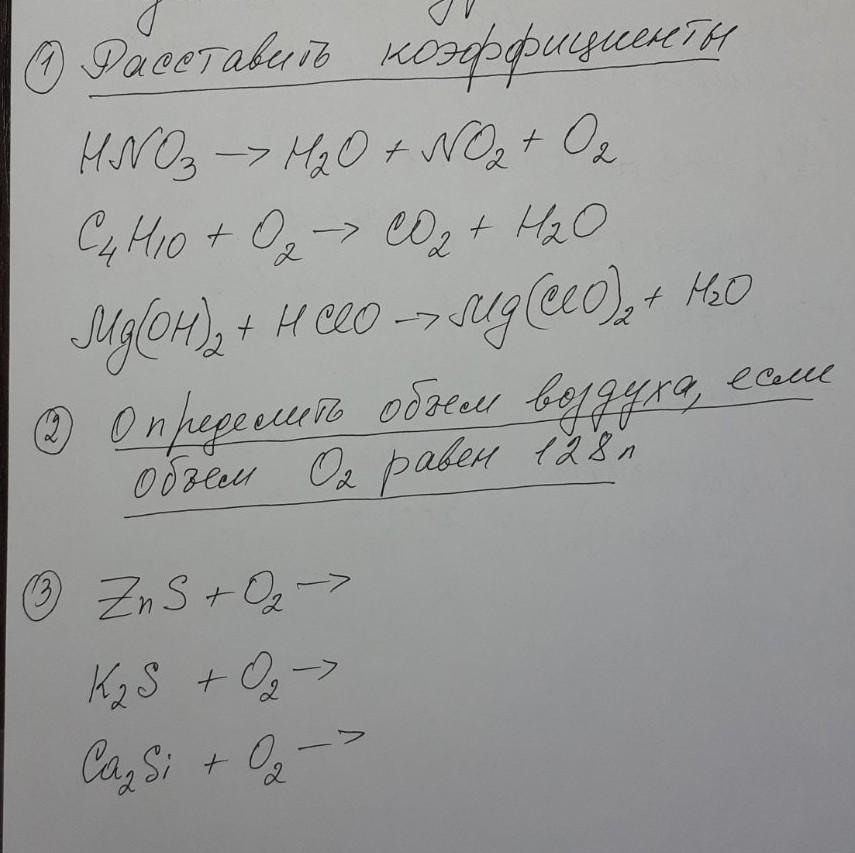 ① Расставить коэффициенты
HNO₃ → H₂O + NO₂ + O₂
C₄H₁₀ + O₂ → CO₂ + H₂O
Mg(OH)₂ + HClO → Mg(ClO)₂ + H₂O
② Определить объем воздуха, если
объем O₂ равен 128 л
③ ZnS + O₂ →
K₂S + O₂ →
Ca₂Si + O₂ →